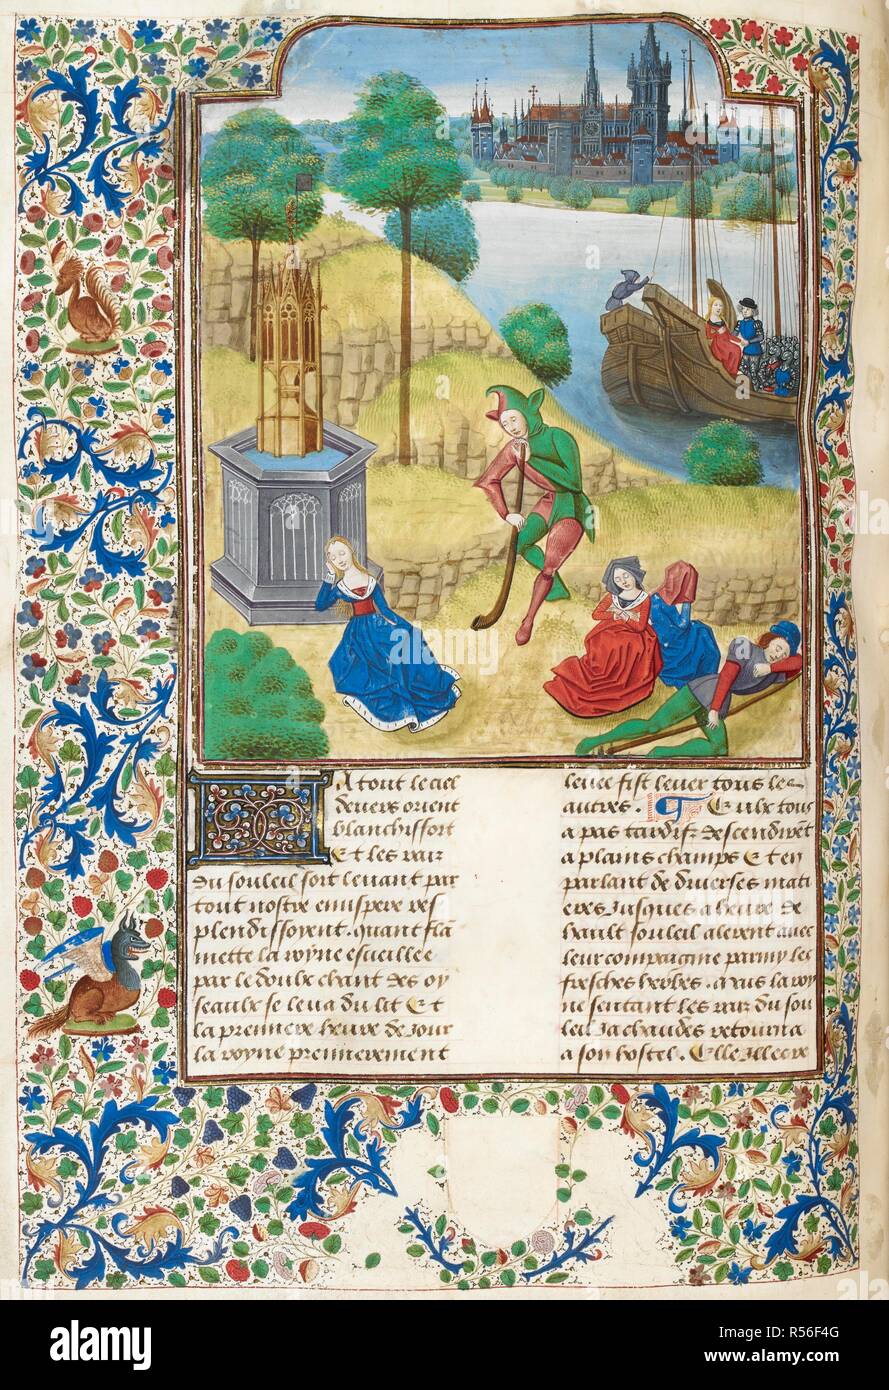 Ja tout le ciel
devers orient
blanchissoit
Et les rais
du souleil soit levant par
tout nostre emispere res
plendissoyent. quant fla
mette la royne esveillee
par le doulx chant des oy
seaulx se leva du lit Et
la premiere heure de jour
la royne premierement
levee fist lever tous les
autres. Et eulx tous
a pas tardifz descendirent
a plains champs Et en
parlant de diverses mati
eres Jusques a heure de
hault souleil alerent avec
leur compaignie parmy les
fresches herbes. Mais la roy
ne sentant les rais du sou
leil ja chaudes retourna
a son hostel. Elle illecques
alamy stock photo
alamy
Image ID: R56F4G
www.alamy.com